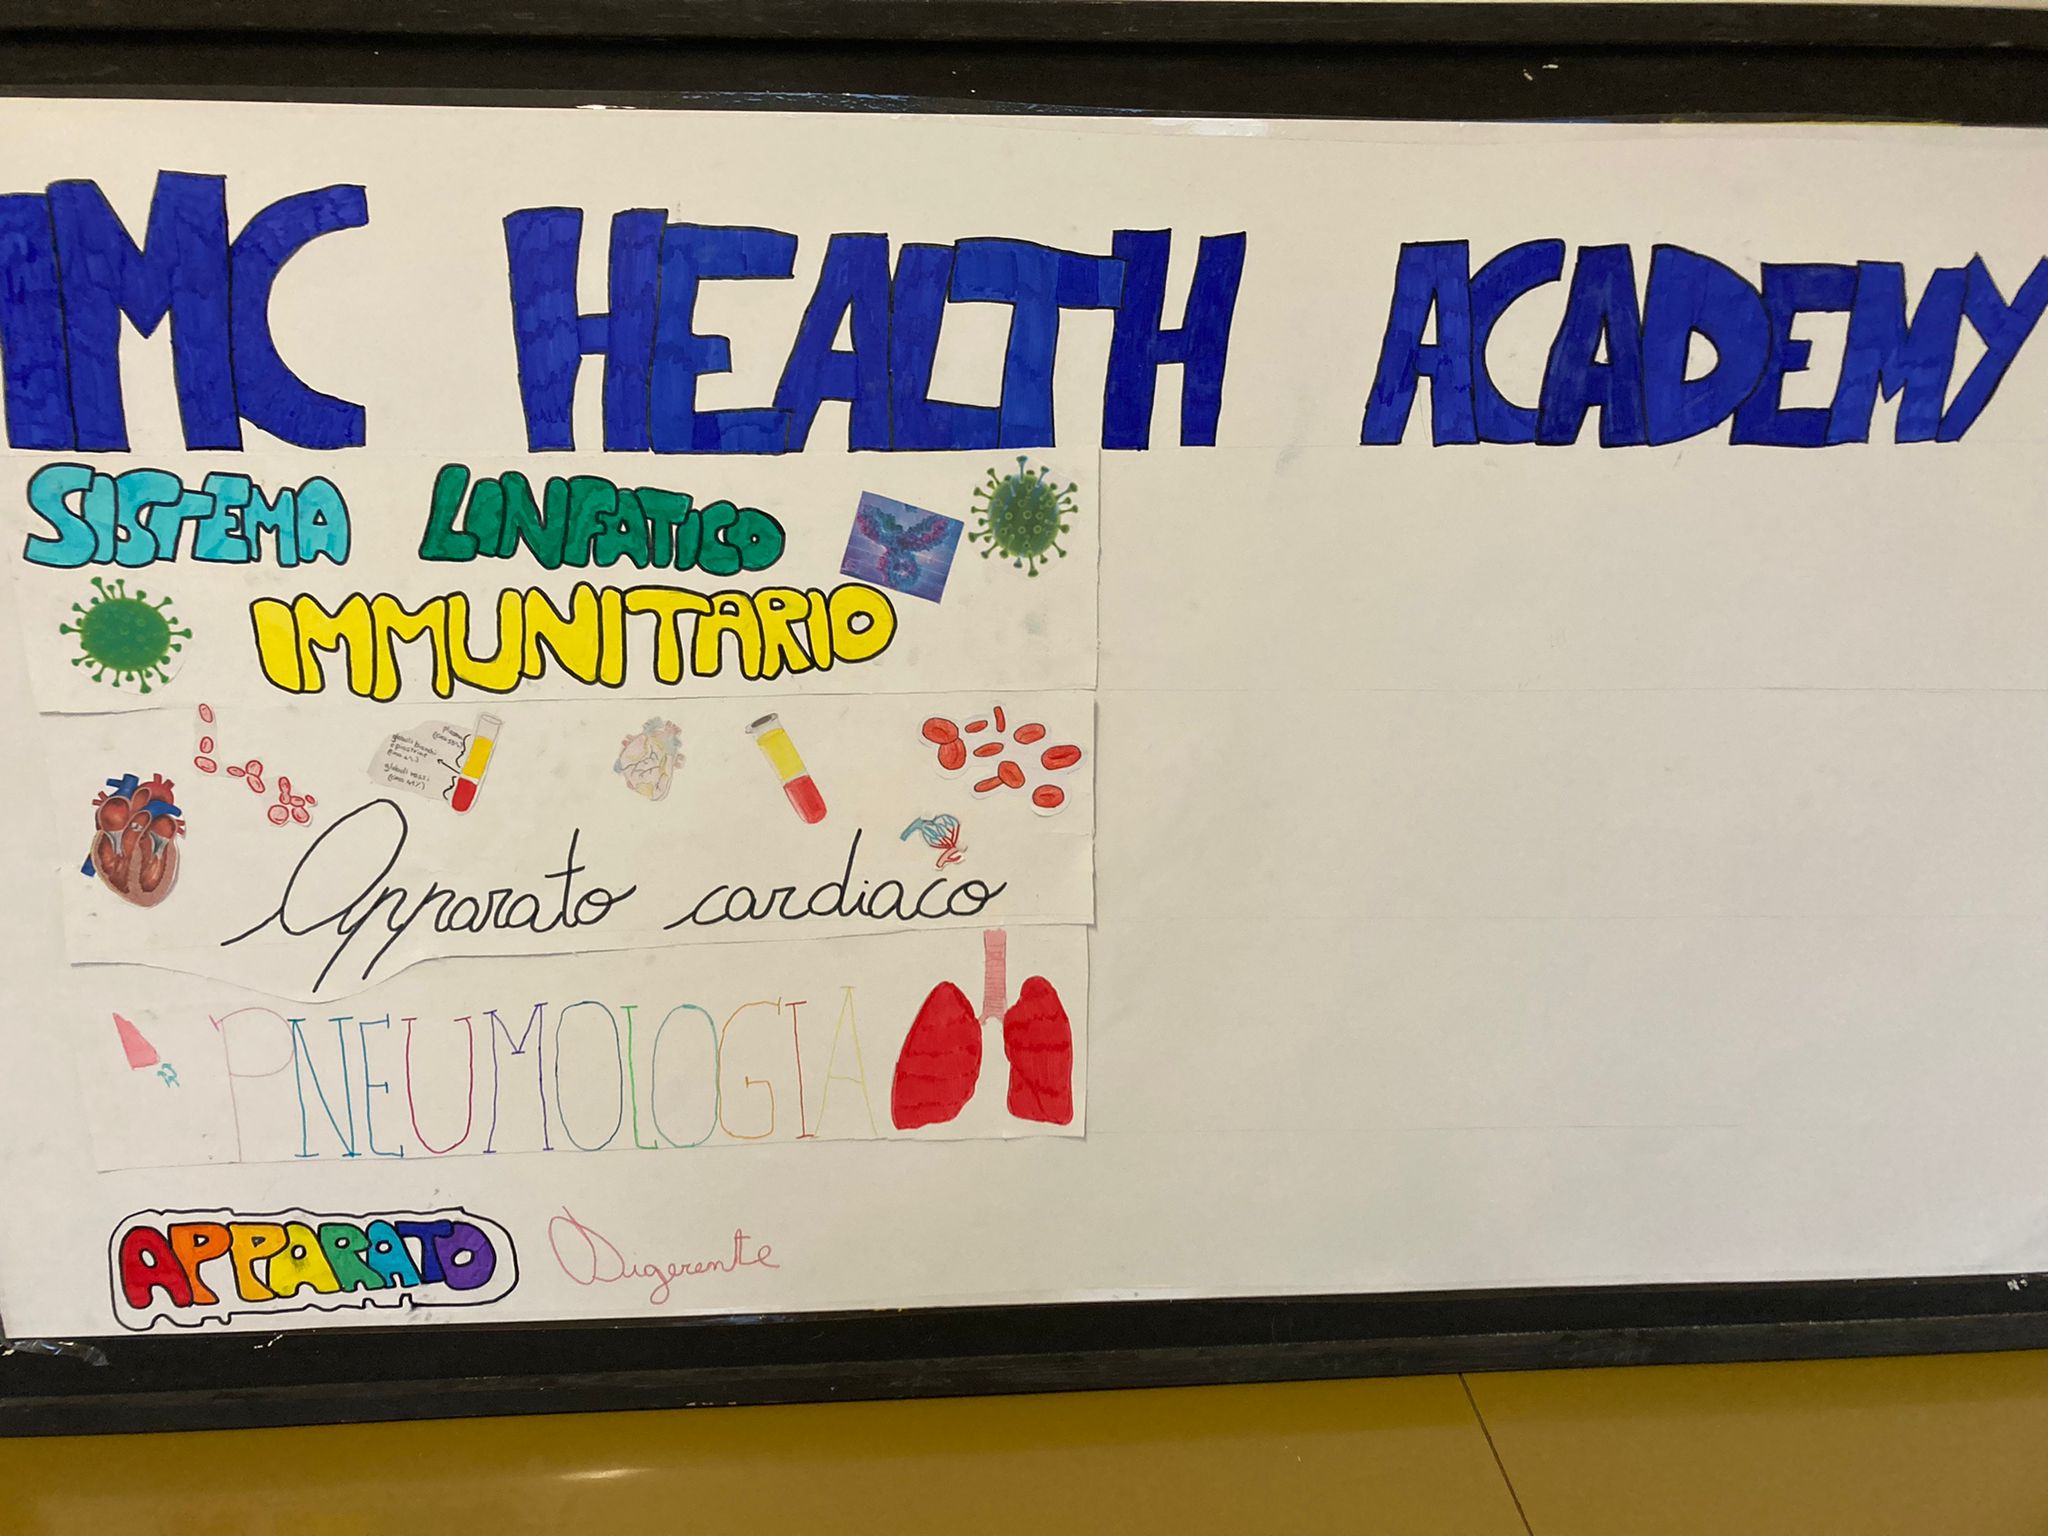 IMC HEALTH ACADEMY
SISTEMA LINFATICO
IMMUNITARIO
plasma
(circa 55%)
globuli bianchi
e piastrine
(circa 4%)
globuli rossi
(circa 41%)
Apparato cardiaco
PNEUMOLOGIA
APPARATO Digerente